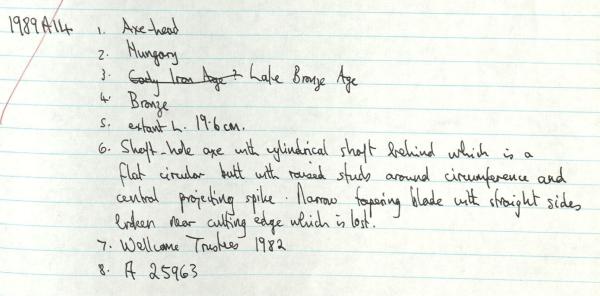 1989A14 1. Axe-head
2. Hungary
3. Early Iron Age? Late Bronze Age
4. Bronze
5. extant L. 19.6 cm.
6. Shaft-hole axe with cylindrical shaft behind which is a
flat circular butt with raised studs around circumference and
central projecting spike. Narrow tapering blade with straight sides
broken near cutting edge which is lost.
7. Wellcome Trustees 1982
8. A 25963